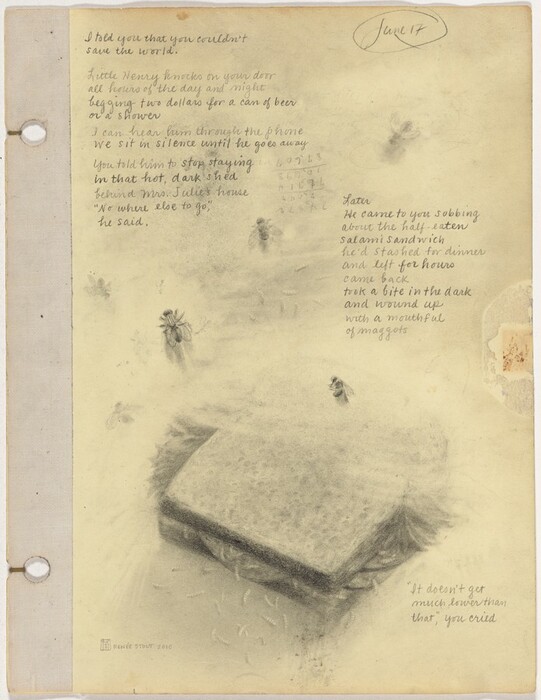 June 17
I told you that you couldn't
save the world.
Little Henry knocks on your door
all hours of the day and night
begging two dollars for a can of beer
or a shower
I can hear him through the phone
We sit in silence until he goes away
You told him to stop staying
in that hot, dark shed
behind Mrs. Julie's house
"No where else to go,"
he said.
Later
He came to you sobbing
about the half-eaten
salami sandwich
he'd stashed for dinner
and left for hours
came back
took a bite in the dark
and wound up
with a mouthful
of maggots
"It doesn't get
much lower than
that," you cried
RENÉE STOUT